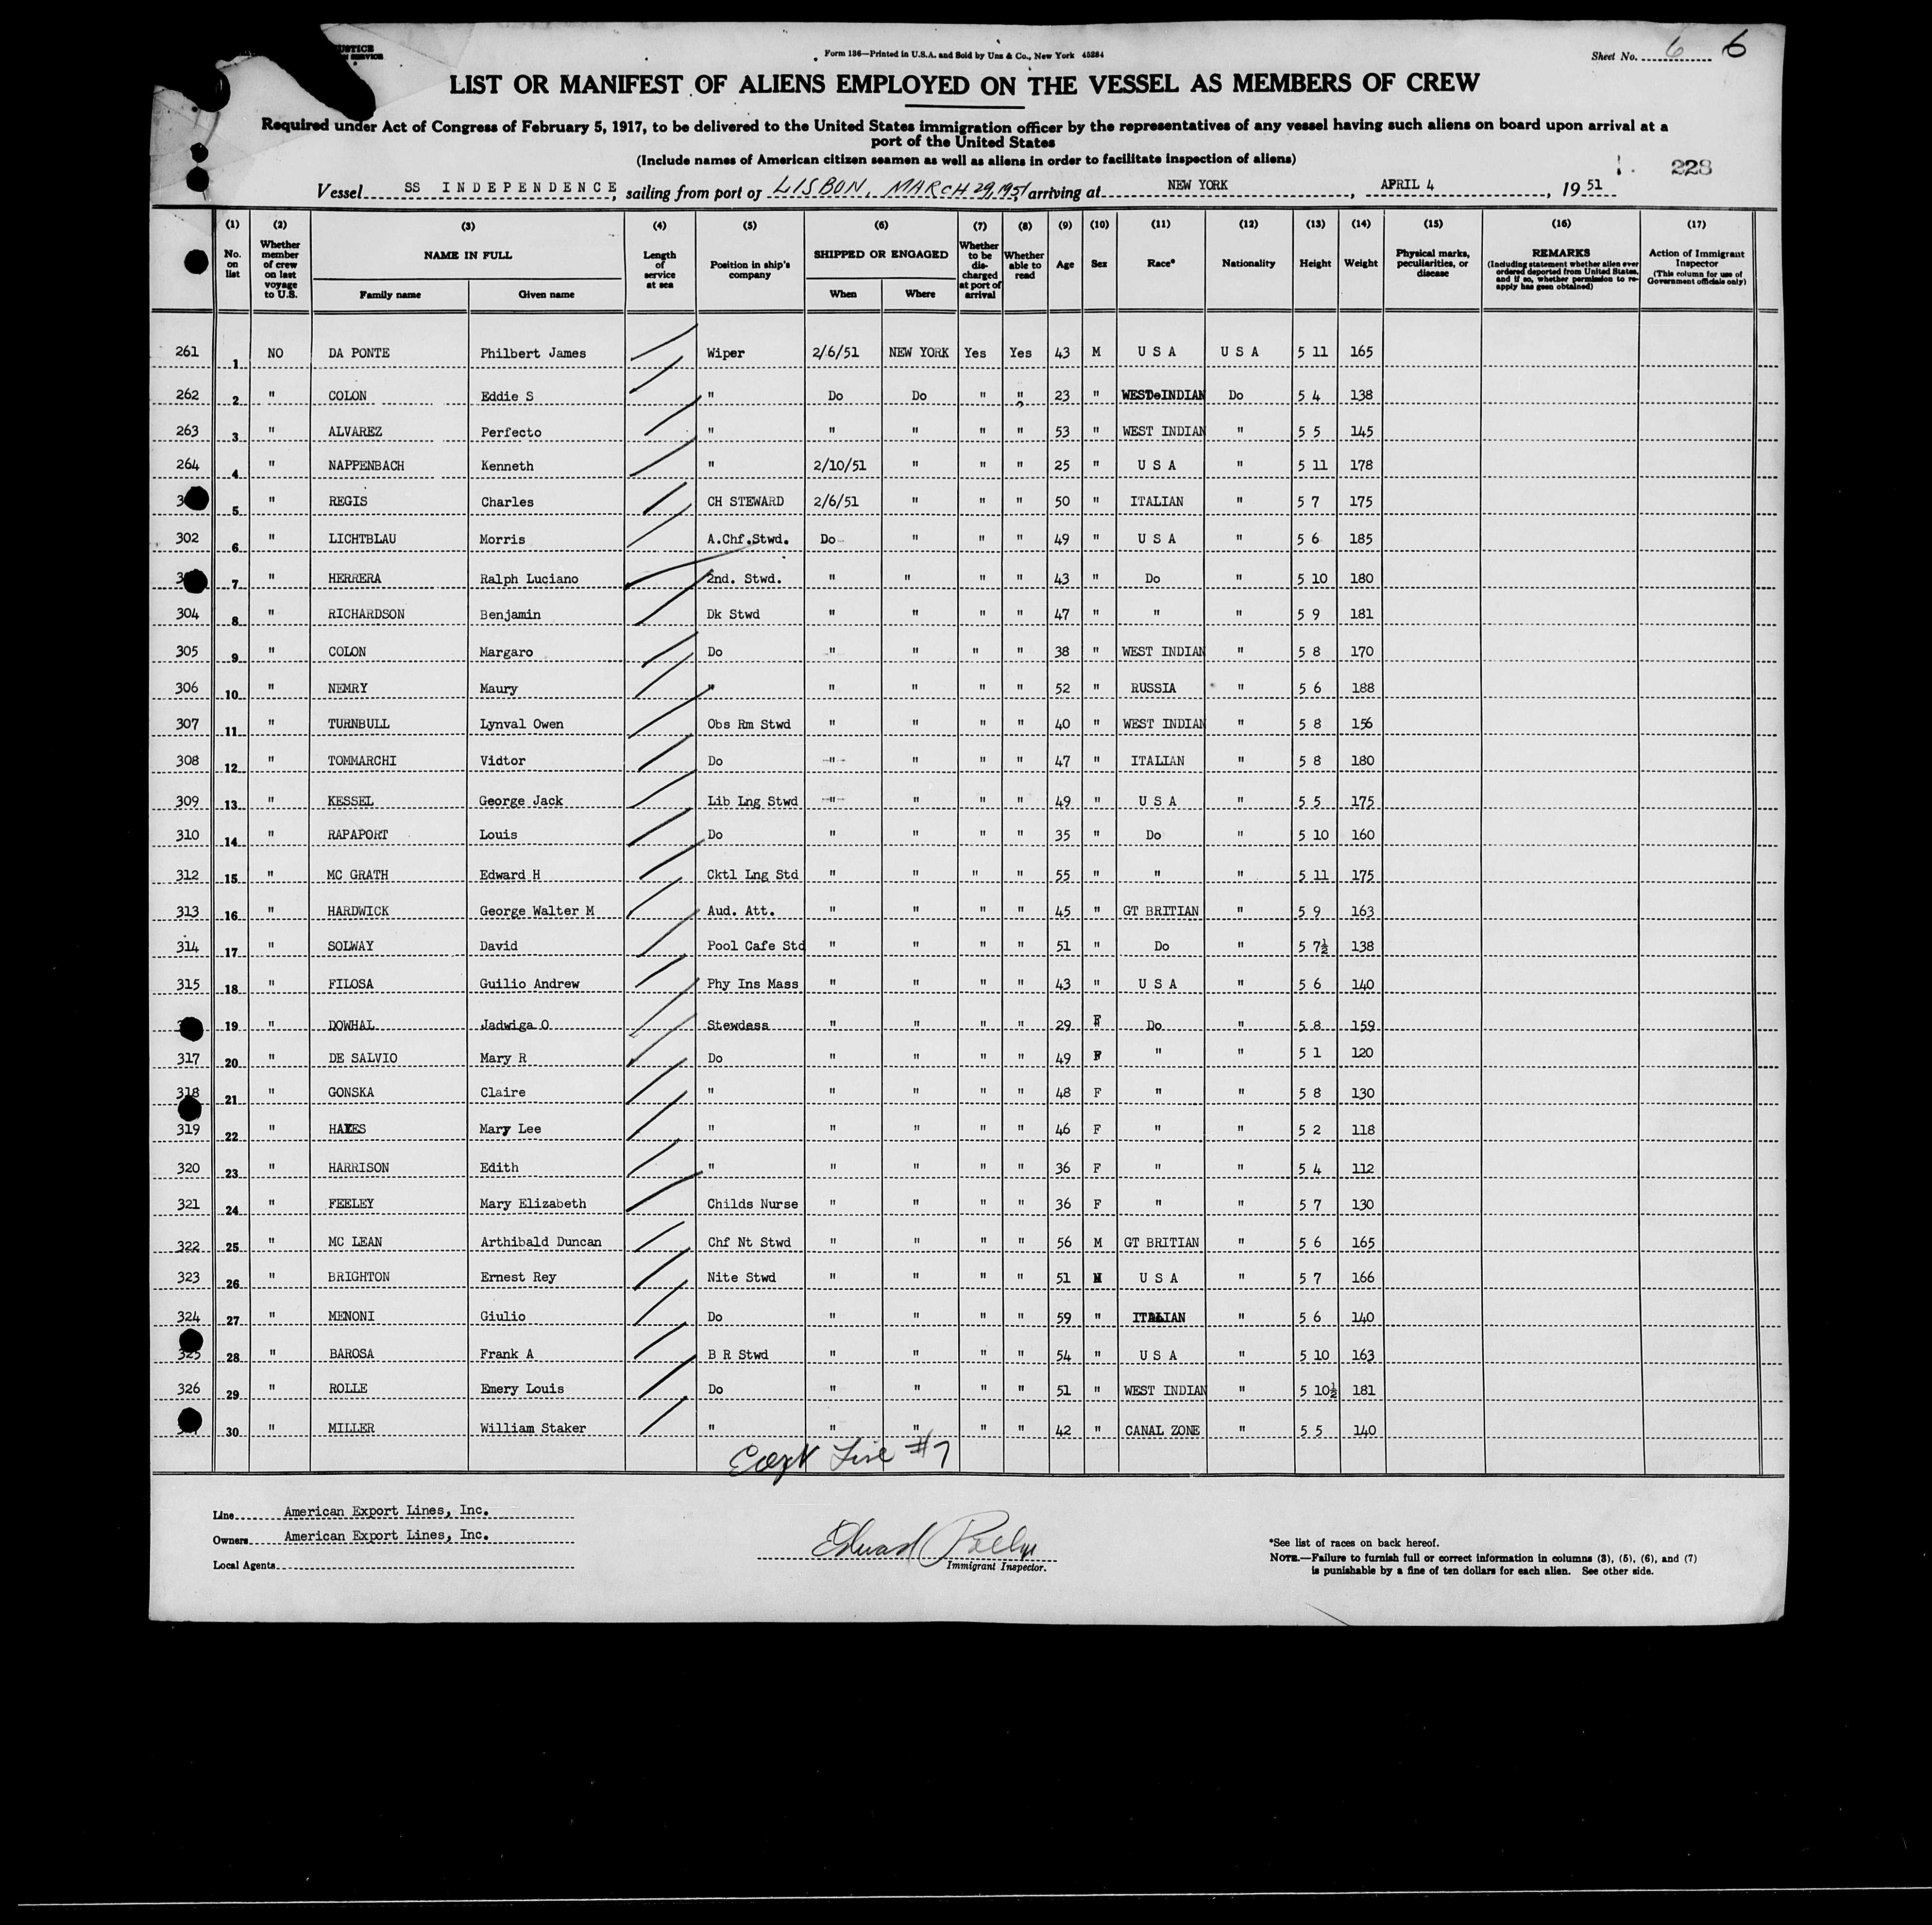 USTICE
N SERVICE
Form 136—Printed in U.S.A. and Sold by Unz & Co., New York 45284
Sheet No. 6 6
LIST OR MANIFEST OF ALIENS EMPLOYED ON THE VESSEL AS MEMBERS OF CREW
Required under Act of Congress of February 5, 1917, to be delivered to the United States immigration officer by the representatives of any vessel having such aliens on board upon arrival at a
port of the United States
(Include names of American citizen seamen as well as aliens in order to facilitate inspection of aliens)
228
Vessel SS INDEPENDENCE, sailing from port of LISBON, MARCH 29, 1951, arriving at NEW YORK, APRIL 4, 1951
(1) (2) (3) (4) (5) (6) (7) (8) (9) (10) (11) (12) (13) (14) (15) (16) (17)
No. on list Whether member of crew on last voyage to U.S. NAME IN FULL Family name Given name Length of service at sea Position in ship's company SHIPPED OR ENGAGED When Where Whether to be discharged at port of arrival Whether able to read Age Sex Race* Nationality Height Weight Physical marks, peculiarities, or disease REMARKS (Including statement whether alien ever ordered deported from United States, and if so, whether permission to re-apply has been obtained) Action of Immigrant Inspector (This column for use of Government officials only)
261 1 NO DA PONTE Philbert James Wiper 2/6/51 NEW YORK Yes Yes 43 M U S A U S A 5 11 165
262 2 " COLON Eddie S " Do Do " " 23 " WEST INDIAN Do 5 4 138
263 3 " ALVAREZ Perfecto " " " " " 53 " WEST INDIAN " 5 5 145
264 4 " NAPPENBACH Kenneth " 2/10/51 " " " 25 " U S A " 5 11 178
5 " REGIS Charles CH STEWARD 2/6/51 " " " 50 " ITALIAN " 5 7 175
302 6 " LICHTBLAU Morris A.Chf.Stwd. Do " " " 49 " U S A " 5 6 185
7 " HERRERA Ralph Luciano 2nd. Stwd. " " " " 43 " Do " 5 10 180
304 8 " RICHARDSON Benjamin Dk Stwd " " " " 47 " " " 5 9 181
305 9 " COLON Margaro Do " " " " 38 " WEST INDIAN " 5 8 170
306 10 " NEMRY Maury " " " " " 52 " RUSSIA " 5 6 188
307 11 " TURNBULL Lynval Owen Obs Rm Stwd " " " " 40 " WEST INDIAN " 5 8 156
308 12 " TOMMARCHI Vidtor Do " " " " 47 " ITALIAN " 5 8 180
309 13 " KESSEL George Jack Lib Lng Stwd " " " " 49 " U S A " 5 5 175
310 14 " RAPAPORT Louis Do " " " " 35 " Do " 5 10 160
312 15 " MC GRATH Edward H Cktl Lng Std " " " " 55 " " " 5 11 175
313 16 " HARDWICK George Walter M Aud. Att. " " " " 45 " GT BRITIAN " 5 9 163
314 17 " SOLWAY David Pool Cafe Std " " " " 51 " Do " 5 7½ 138
315 18 " FILOSA Guilio Andrew Phy Ins Mass " " " " 43 " U S A " 5 6 140
19 " DOWHAL Jadwiga O Stewdess " " " " 29 F Do " 5 8 159
317 20 " DE SALVIO Mary R Do " " " " 49 F " " 5 1 120
318 21 " GONSKA Claire " " " " " 48 F " " 5 8 130
319 22 " HAYES Mary Lee " " " " " 46 F " " 5 2 118
320 23 " HARRISON Edith " " " " " 36 F " " 5 4 112
321 24 " FEELEY Mary Elizabeth Childs Nurse " " " " 36 F " " 5 7 130
322 25 " MC LEAN Arthibald Duncan Chf Nt Stwd " " " " 56 M GT BRITIAN " 5 6 165
323 26 " BRIGHTON Ernest Rey Nite Stwd " " " " 51 M U S A " 5 7 166
324 27 " MENONI Giulio Do " " " " 59 " ITALIAN " 5 6 140
325 28 " BAROSA Frank A B R Stwd " " " " 54 " U S A " 5 10 163
326 29 " ROLLE Emery Louis Do " " " " 51 " WEST INDIAN " 5 10½ 181
30 " MILLER William Staker " " " " " 42 " CANAL ZONE " 5 5 140
Line #7
Line American Export Lines, Inc.
Owners American Export Lines, Inc.
Local Agents
Edward
Immigrant Inspector.
*See list of races on back hereof.
NOTE.—Failure to furnish full or correct information in columns (3), (5), (6), and (7)
is punishable by a fine of ten dollars for each alien. See other side.